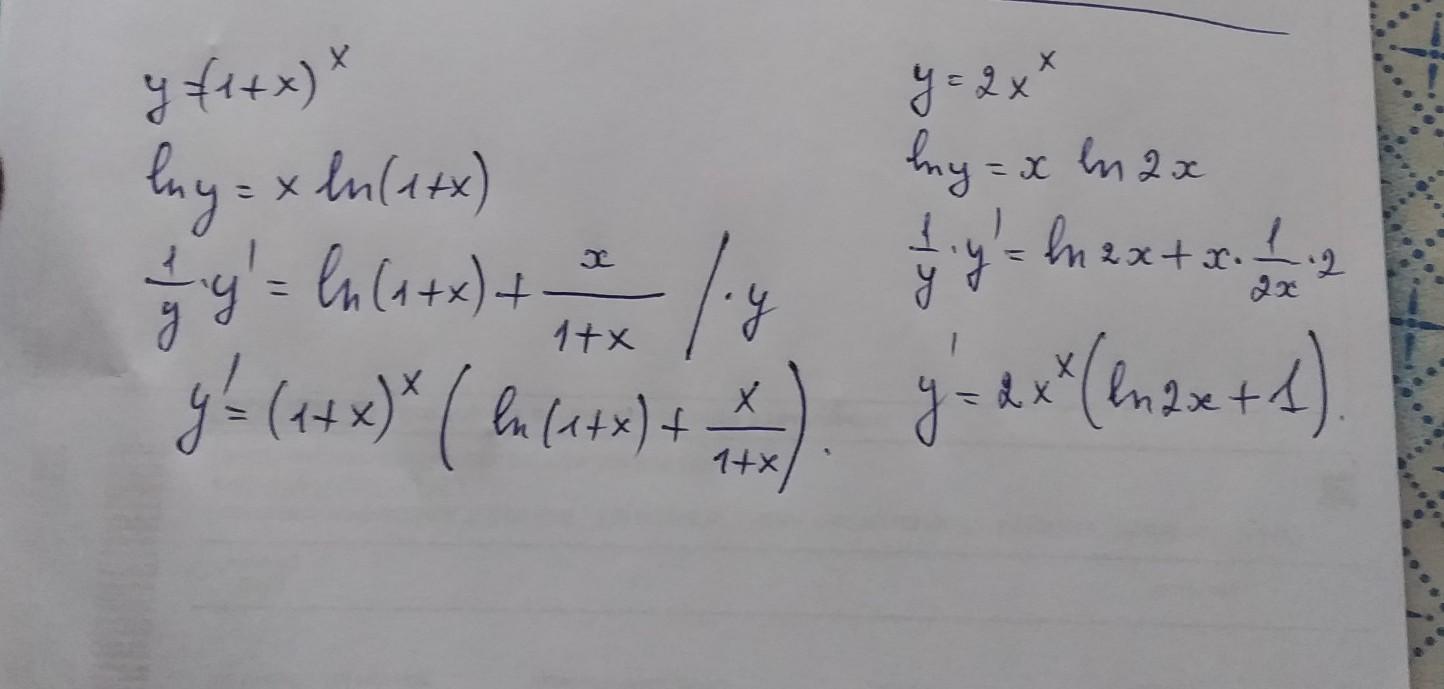 y=(1+x)^x
ln y = x ln(1+x)
1/y · y' = ln(1+x) + x/(1+x) / · y
y' = (1+x)^x ( ln(1+x) + x/(1+x) ).
y = 2x^x
ln y = x ln 2x
1/y · y' = ln 2x + x · 1/2x · 2
y' = 2x^x (ln 2x + 1).